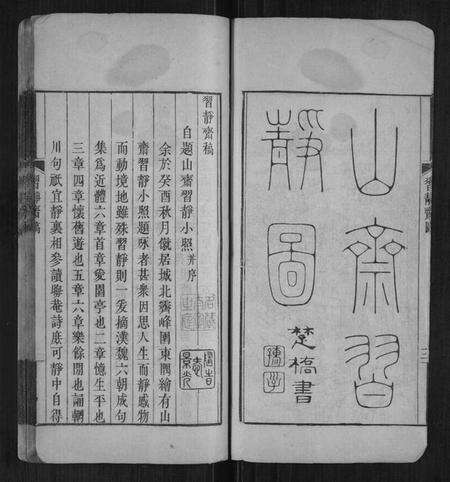 山齋習
靜圖
楚橋書
習靜齋稿
自題山齋習靜小照 并序
余於癸酉秋月僦居城北霽峰園東隅繪有山
齋習靜小照題咏者甚衆因思人生而靜感物
而動境地雖殊習靜則一爰摘漢魏六朝成句
集為近體六章首章愛園亭也二章憶生平也
三章四章懷舊遊也五章六章樂餘閒也誦輞
川句祇宜靜裏相參讀菴詩庶可靜中自得
習靜齋稿